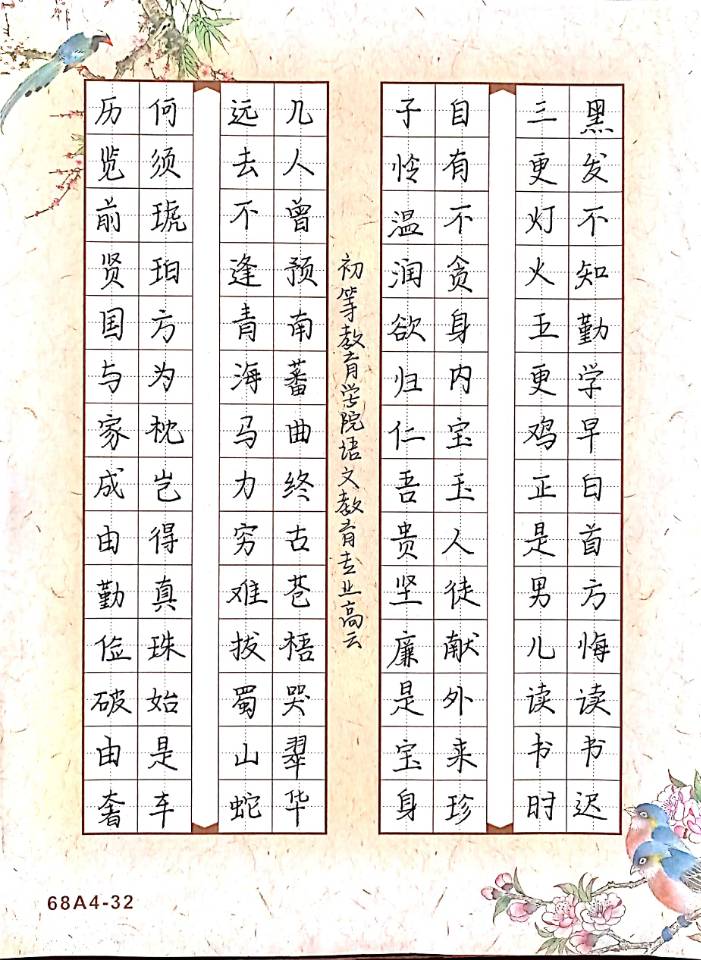 历览前贤国与家成由勤俭破由奢
何须琥珀方为枕岂得真珠始是车
远去不逢青海马力穷难拔蜀山蛇
几人曾预南蕃曲终古苍梧哭翠华
初等教育学院语文教育专业高云
子怜温润欲归仁吾贵坚廉是宝身
自有不贪身内宝玉人徒献外来珍
三更灯火五更鸡正是男儿读书时
黑发不知勤学早白首方悔读书迟
68A4-32